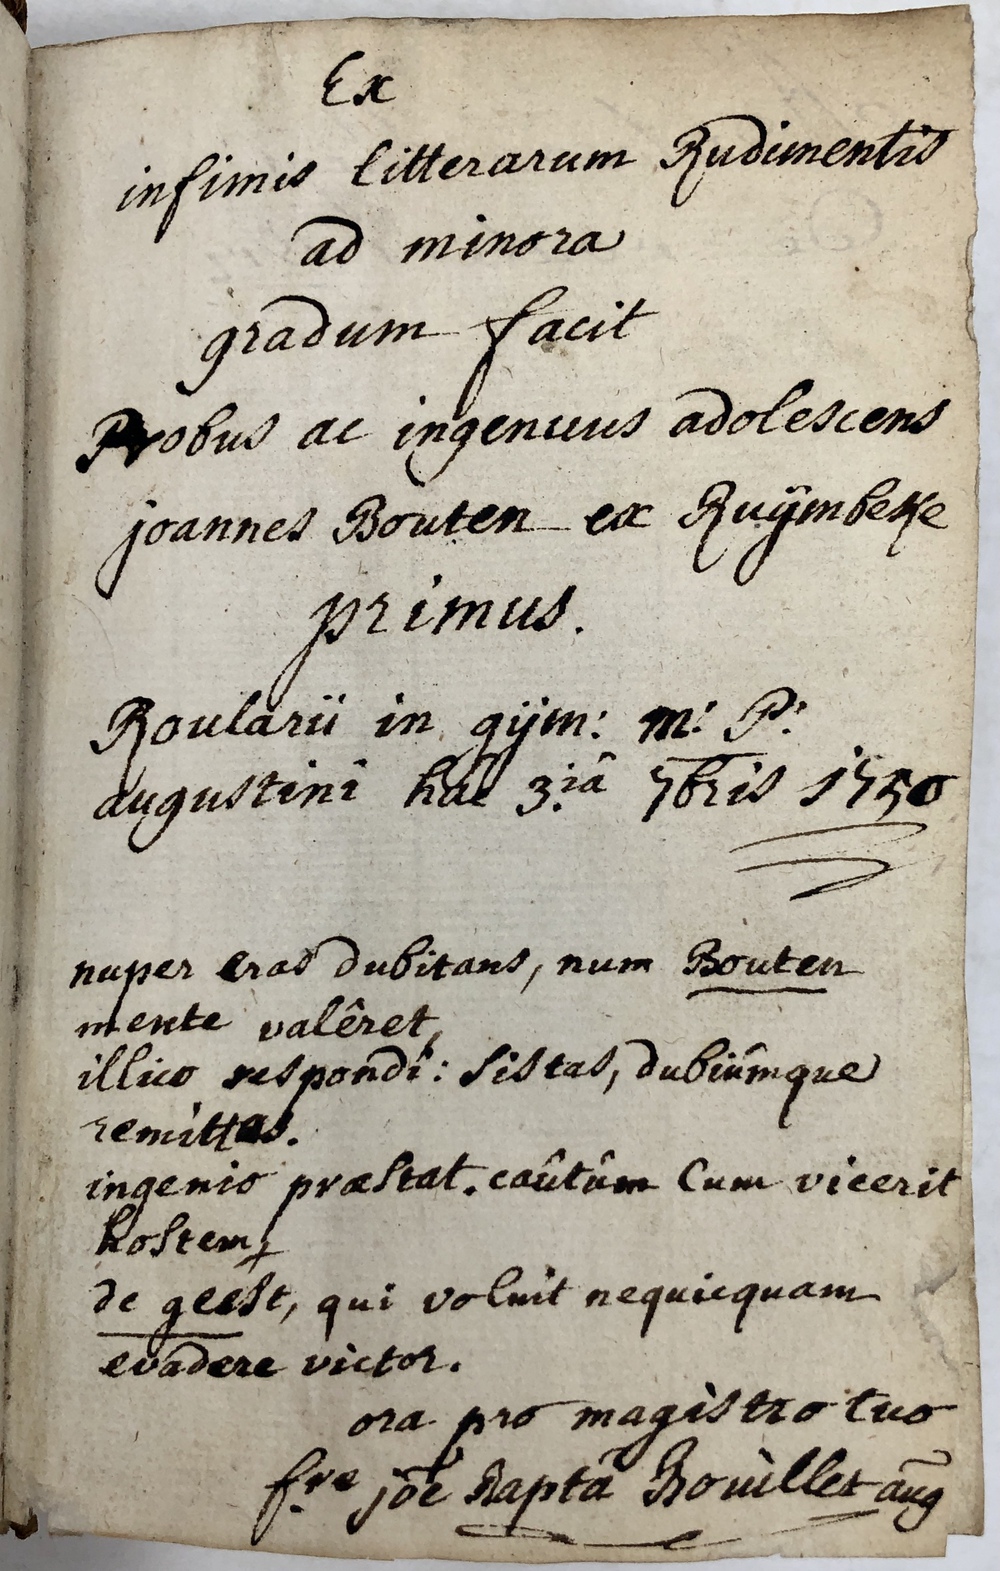 Ex
infimis litterarum Rudimentis
ad minora
gradum facit
Probus ac ingenuus adolescens
joannes Bouten ex Ruÿmbeke
primus.
Roularii in gÿm: m: P:
augustini hac 3.iâ 7bris 1750
nuper eras dubitans, num Bouten
mente valêret,
illico respondi: sistas, dubiûmque
remittas.
ingenio præstat. caûtûm Cum vicerit
hostem,
de geest, qui voluit nequicquam
evadere victor.
ora pro magistro tuo
fre joe Bapta Rouillet aug